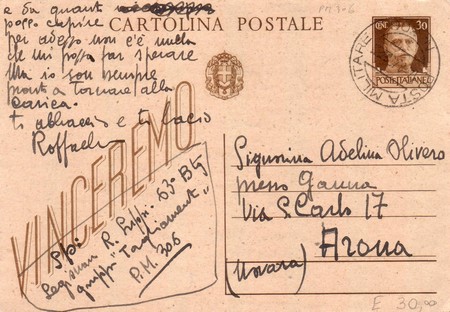 e da quant
posso capire
per adesso non c'è nulla
che mi possa far sperare
Ma io son sempre
pronto a tornare alla
carica.
ti abbraccio e ti bacio
Raffaele
P.M. 306
CARTOLINA POSTALE
CENT. 30
POSTE ITALIANE
POSTA MILITARE
VINCEREMO
Sp:
Legionar. R. 63° Btg
gruppo "Tagliamento"
P.M. 306
Signorina Adelina Olivero
presso Gauna
Via S. Carlo 17
Arona
(Novara)
E 30,00